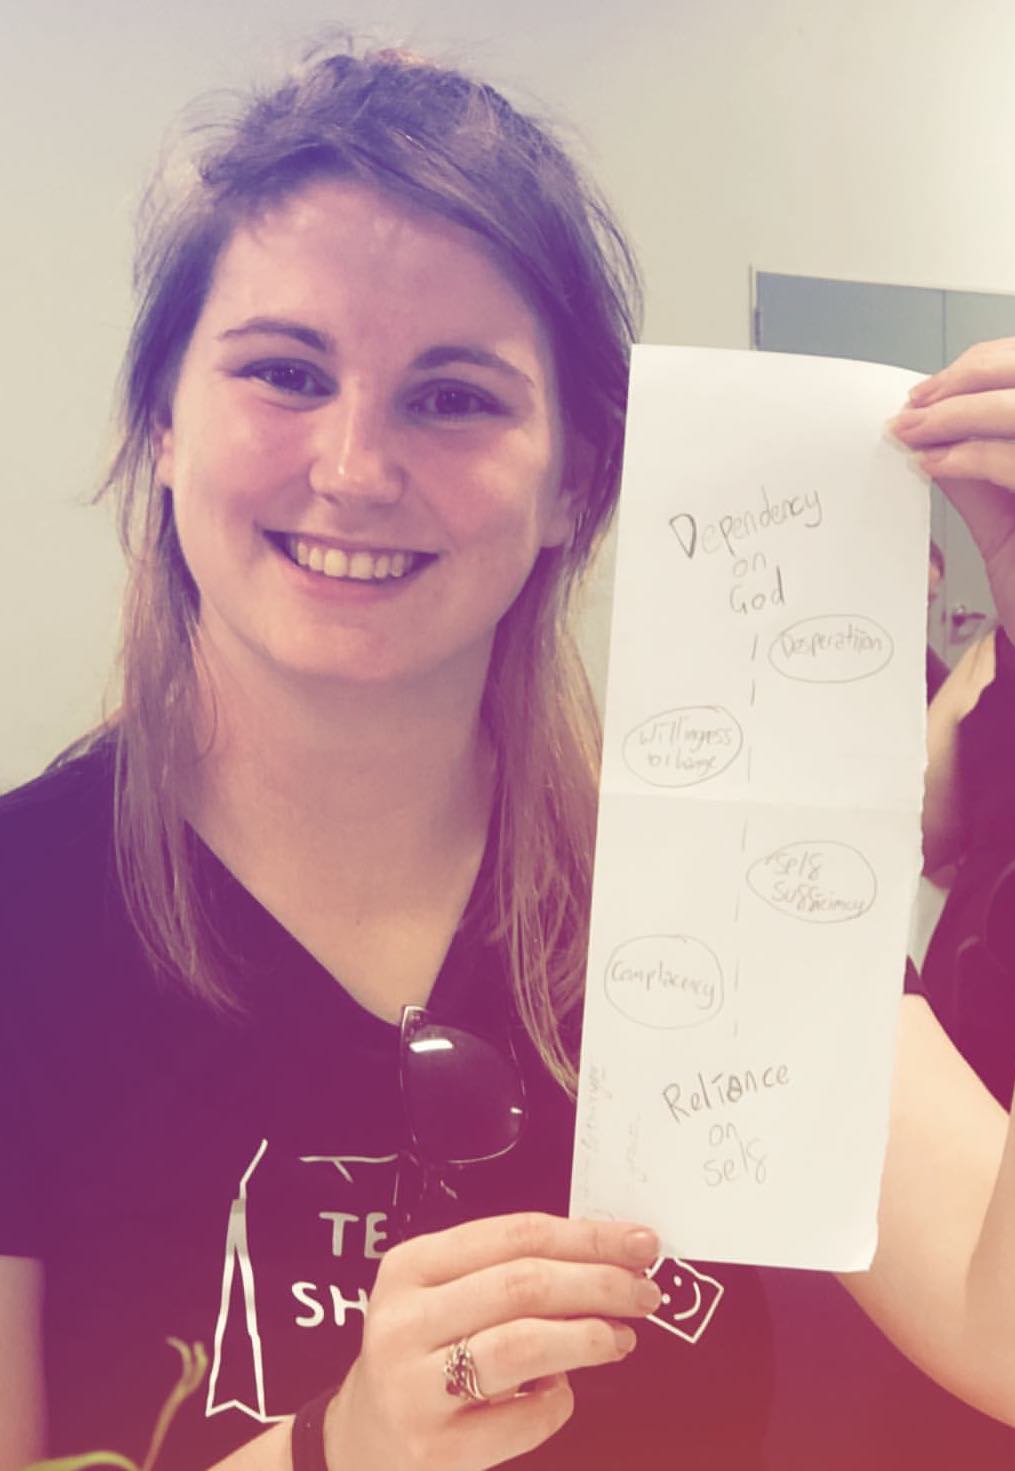 Dependency
on
God
Desperatiion
Willingess
to change
Self
Sufficimcy
Complacency
Reliance
on
self
TE
SH